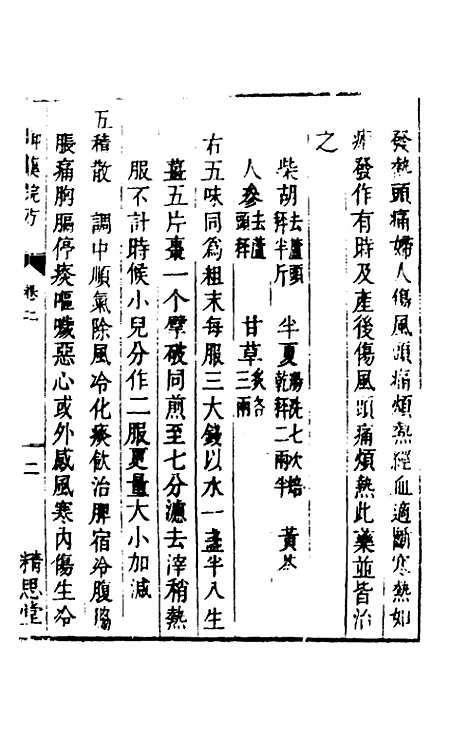 發熱頭痛婦人傷風頭痛煩熱經血適斷寒熱如
瘧發作有時及產後傷風頭痛煩熱此藥並皆治
之
柴胡去蘆頭秤半斤 半夏湯洗七次焙乾秤二兩半 黃芩
人參去蘆頭秤 甘草炙各三兩
右五味同為粗末每服三大錢以水一盞半入生
薑五片棗一个擘破同煎至七分濾去滓稍熱
服不計時候小兒分作二服更量大小加減
五積散 調中順氣除風冷化痰飲治脾宿冷腹脇
脹痛胸膈停痰嘔噦惡心或外感風寒內傷生冷
御藥院方 卷二 二 精思堂